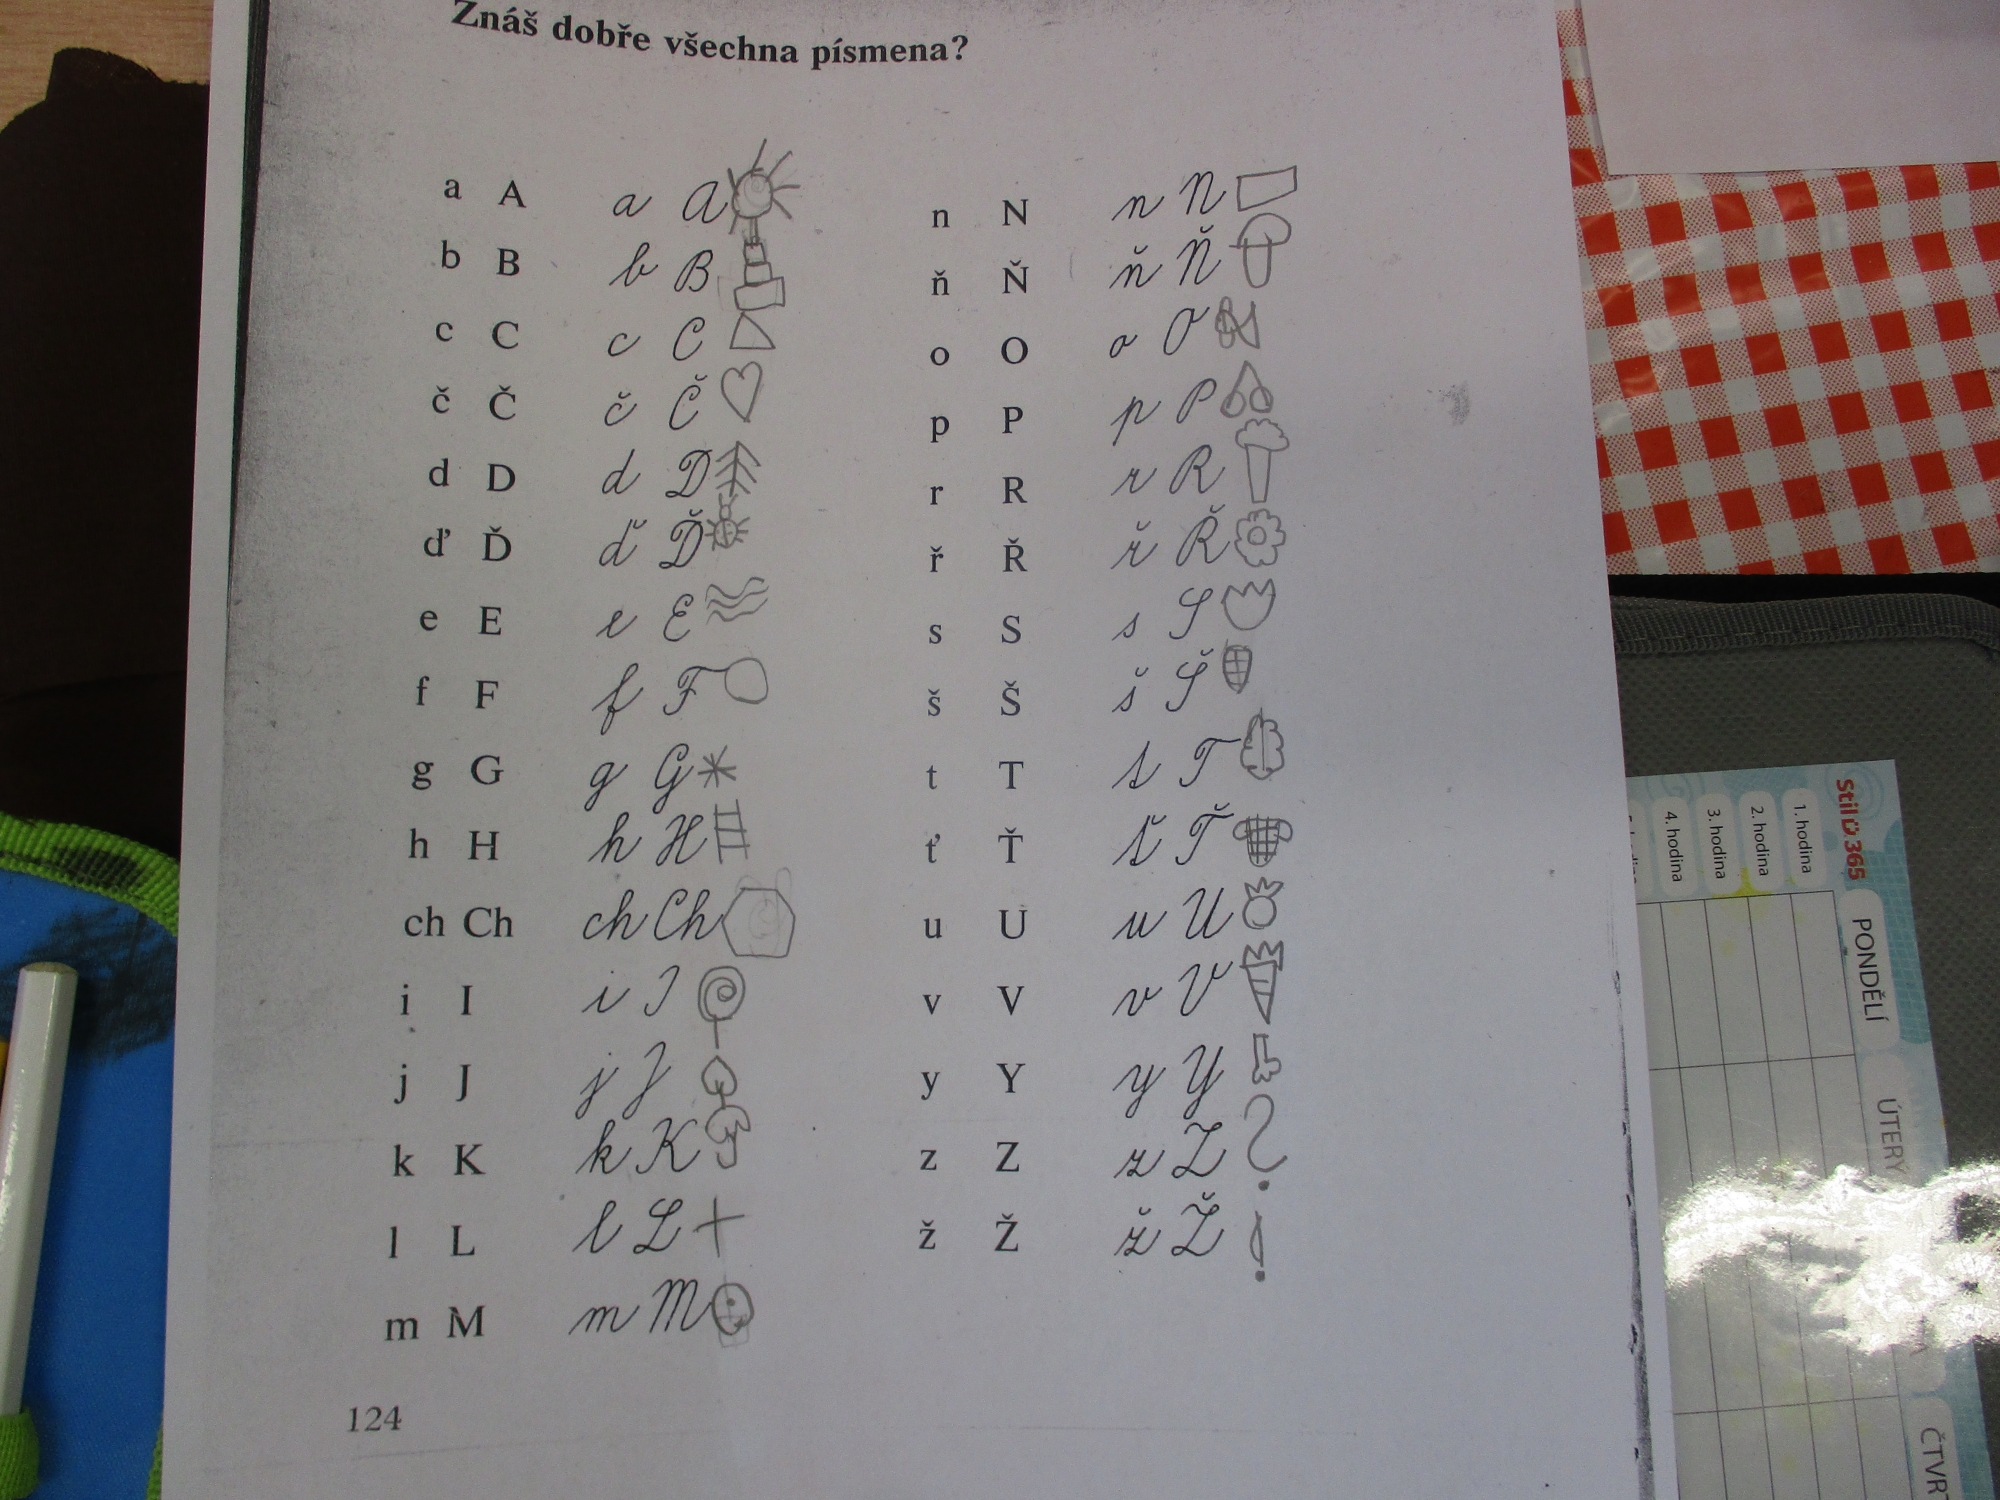 Znáš dobře všechna písmena?
a A a A
b B b B
c C c C
č Č č Č
d D d D
ď Ď ď Ď
e E e E
f F f F
g G g G
h H h H
ch Ch ch Ch
i I i I
j J j J
k K k K
l L l L
m M m M
n N n N
ň Ň ň Ň
o O o O
p P p P
r R r R
ř Ř ř Ř
s S s S
š Š š Š
t T t T
ť Ť ť Ť
u U u U
v V v V
y Y y Y
z Z z Z
ž Ž ž Ž
124
Stil 365
1. hodina
2. hodina
3. hodina
4. hodina
PONDĚLÍ
ÚTERÝ